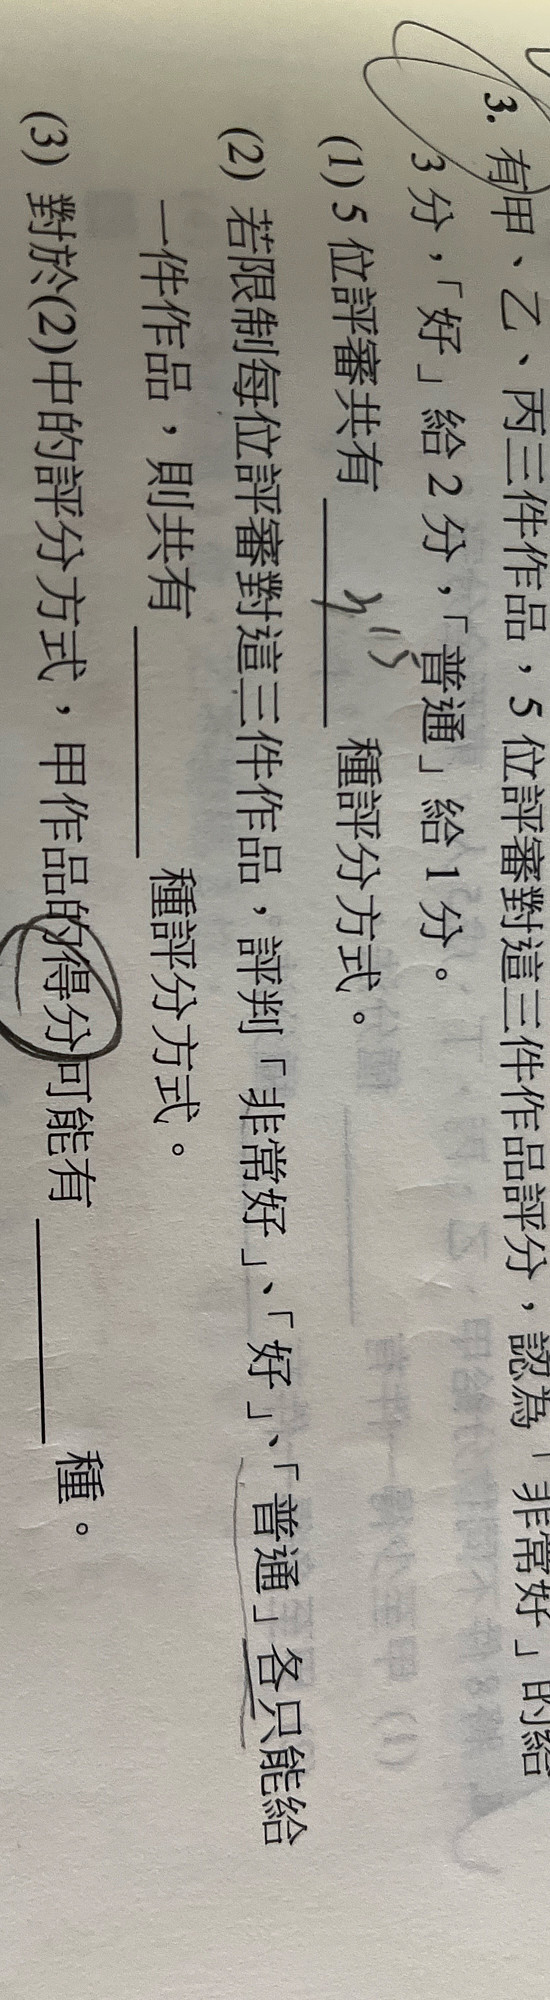 3. 有甲、乙、丙三件作品，5 位評審對這三件作品評分，認為「非常好」的給
3 分，「好」給 2 分，「普通」給 1 分。
(1) 5 位評審共有 ＿＿＿＿ 種評分方式。
(2) 若限制每位評審對這三件作品，評判「非常好」、「好」、「普通」各只能給
一件作品，則共有 ＿＿＿＿ 種評分方式。
(3) 對於(2)中的評分方式，甲作品的得分可能有 ＿＿＿＿ 種。